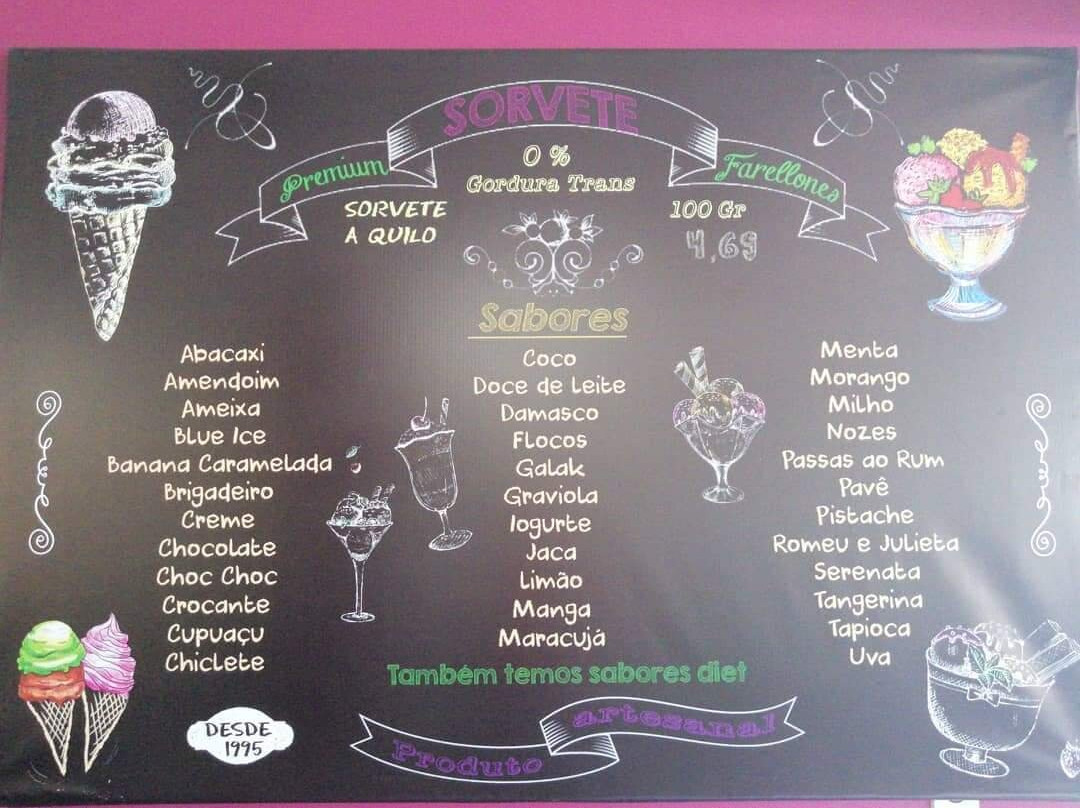 SORVETE
Premium
Farellones
0 %
Gordura Trans
SORVETE
A QUILO
100 Gr
4,69
Sabores
Abacaxi
Amendoim
Ameixa
Blue Ice
Banana Caramelada
Brigadeiro
Creme
Chocolate
Choc Choc
Crocante
Cupuaçu
Chiclete
Coco
Doce de Leite
Damasco
Flocos
Galak
Graviola
Iogurte
Jaca
Limão
Manga
Maracujá
Menta
Morango
Milho
Nozes
Passas ao Rum
Pavê
Pistache
Romeu e Julieta
Serenata
Tangerina
Tapioca
Uva
Também temos sabores diet
DESDE
1995
Produto artesanal